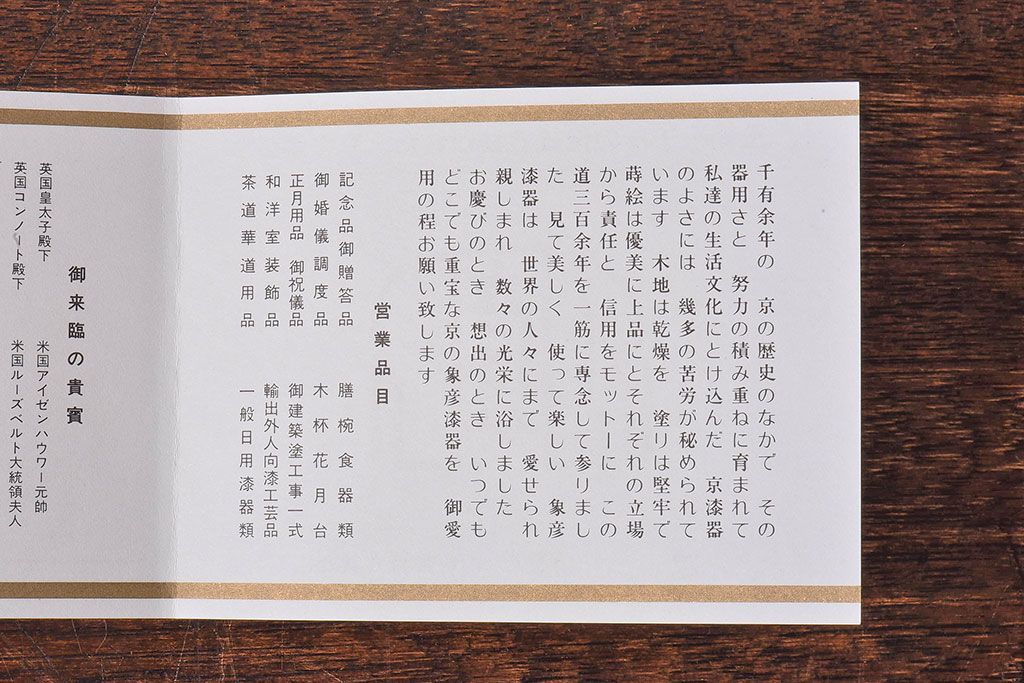 千有余年の 京の歴史のなかで その
器用さと 努力の積み重ねに育まれて
私達の生活文化にとけ込んだ 京漆器
のよさには 幾多の苦労が秘められて
います 木地は乾燥を 塗りは堅牢で
蒔絵は優美に上品にとそれぞれの立場
から責任と 信用をモットーに この
道三百余年を一筋に専念して参りまし
た 見て美しく 使って楽しい 象彦
漆器は 世界の人々にまで 愛せられ
親しまれ 数々の光栄に浴しました
お慶びのとき 想出のとき いつでも
どこでも重宝な京の象彦漆器を 御愛
用の程お願い致します
営業品目
記念品御贈答品 膳椀食器類
御婚儀調度品 木杯花月台
正月用品 御祝儀品 御建築塗工事一式
和洋室装飾品 輸出外人向漆工芸品
茶道華道用品 一般日用漆器類
御来臨の貴賓
英国皇太子殿下 米国アイゼンハウワー元帥
英国コンノート殿下 米国ルーズベルト大統領夫人